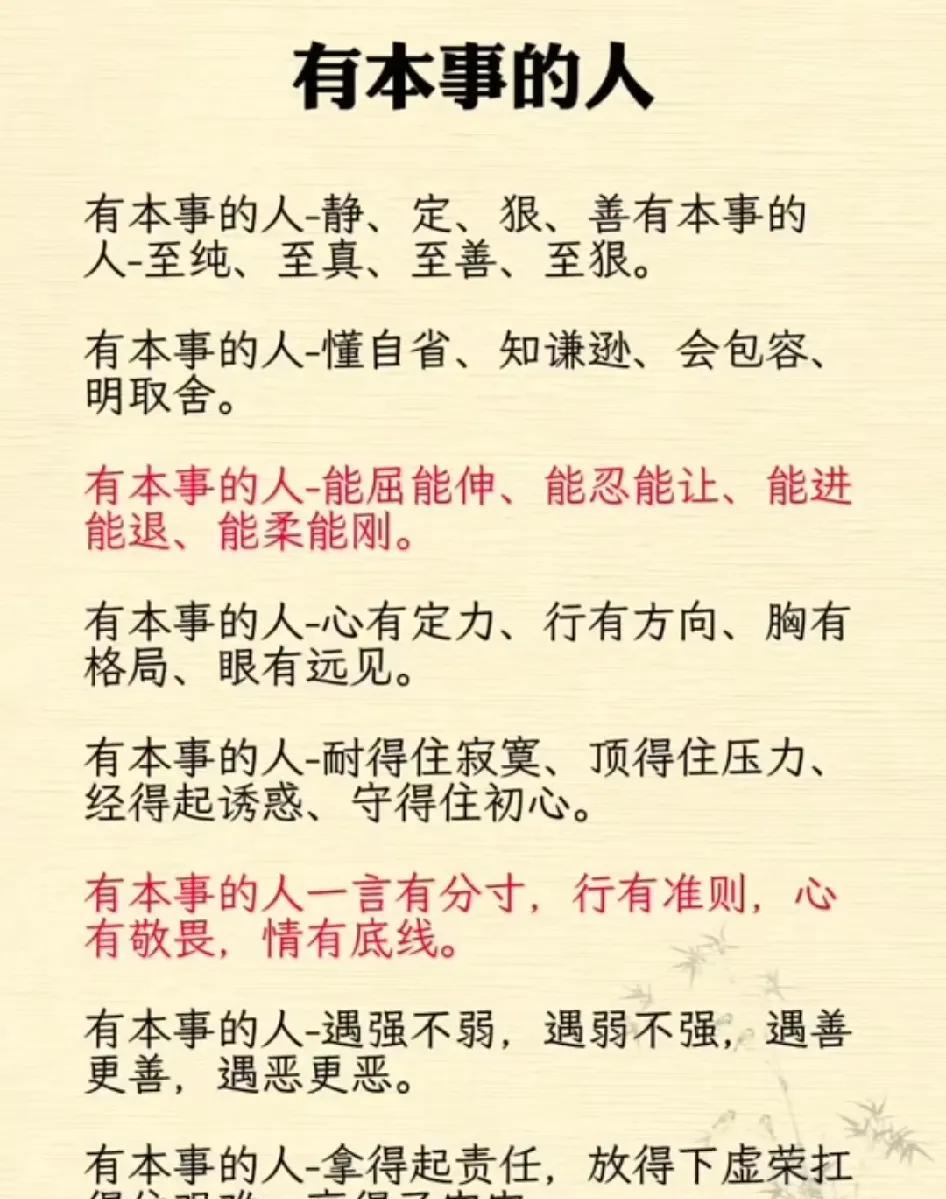 有本事的人
有本事的人-静、定、狠、善有本事的
人-至纯、至真、至善、至狠。
有本事的人-懂自省、知谦逊、会包容、
明取舍。
有本事的人-能屈能伸、能忍能让、能进
能退、能柔能刚。
有本事的人-心有定力、行有方向、胸有
格局、眼有远见。
有本事的人-耐得住寂寞、顶得住压力、
经得起诱惑、守得住初心。
有本事的人一言有分寸，行有准则，心
有敬畏，情有底线。
有本事的人-遇强不弱，遇弱不强，遇善
更善，遇恶更恶。
有本事的人-拿得起责任，放得下虚荣扛